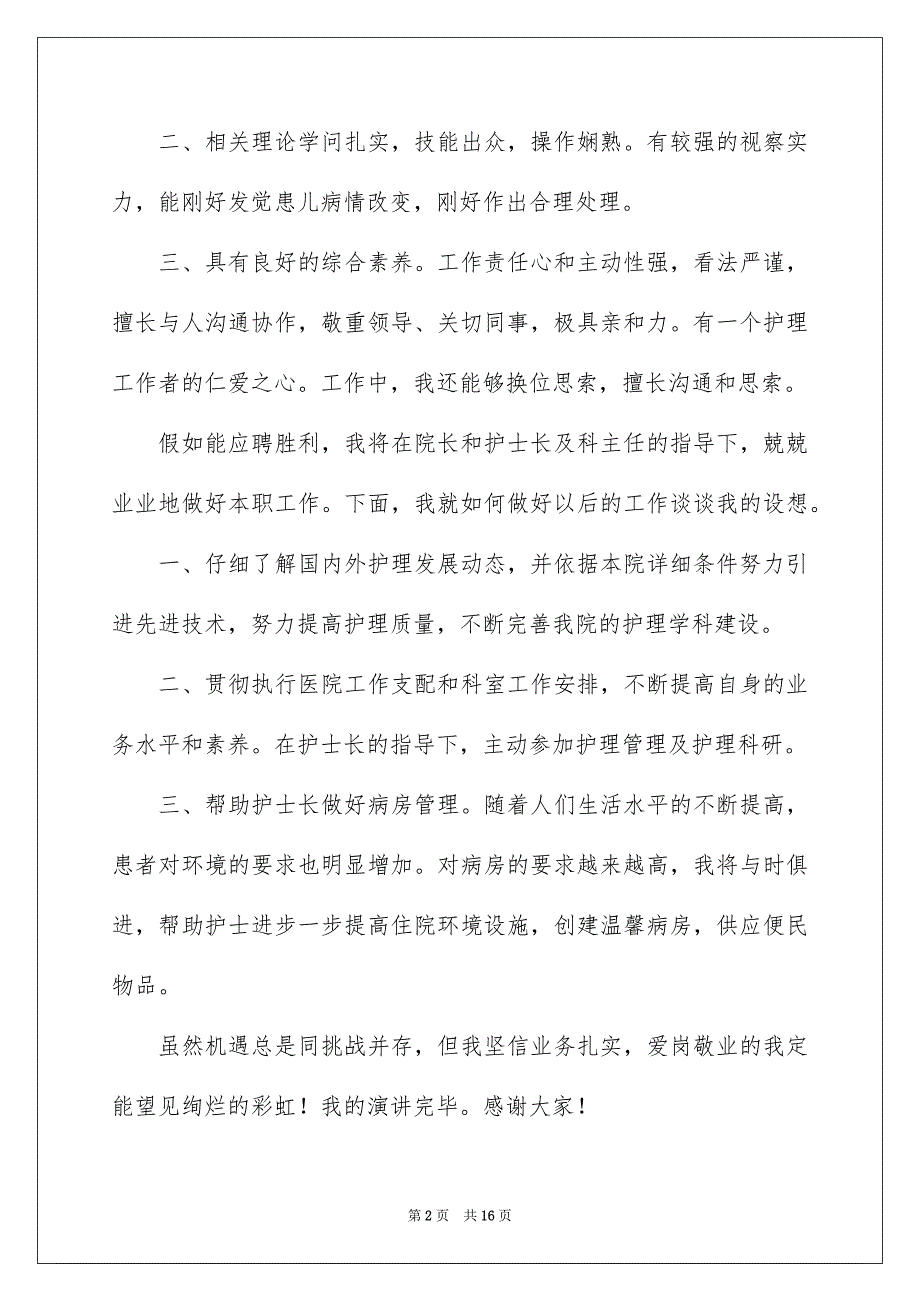 二、相关理论学问扎实，技能出众，操作娴熟。有较强的视察实
力，能刚好发觉患儿病情改变，刚好作出合理处理。
三、具有良好的综合素养。工作责任心和主动性强，看法严谨，
擅长与人沟通协作，敬重领导、关切同事，极具亲和力。有一个护理
工作者的仁爱之心。工作中，我还能够换位思索，擅长沟通和思索。
假如能应聘胜利，我将在院长和护士长及科主任的指导下，兢兢
业业地做好本职工作。下面，我就如何做好以后的工作谈谈我的设想。
一、仔细了解国内外护理发展动态，并依据本院详细条件努力引
进先进技术，努力提高护理质量，不断完善我院的护理学科建设。
二、贯彻执行医院工作支配和科室工作安排，不断提高自身的业
务水平和素养。在护士长的指导下，主动参加护理管理及护理科研。
三、帮助护士长做好病房管理。随着人们生活水平的不断提高，
患者对环境的要求也明显增加。对病房的要求越来越高，我将与时俱
进，帮助护士进步一步提高住院环境设施，创建温馨病房，供应便民
物品。
虽然机遇总是同挑战并存，但我坚信业务扎实，爱岗敬业的我定
能望见绚烂的彩虹！我的演讲完毕。感谢大家！
第 2 页 共 16 页